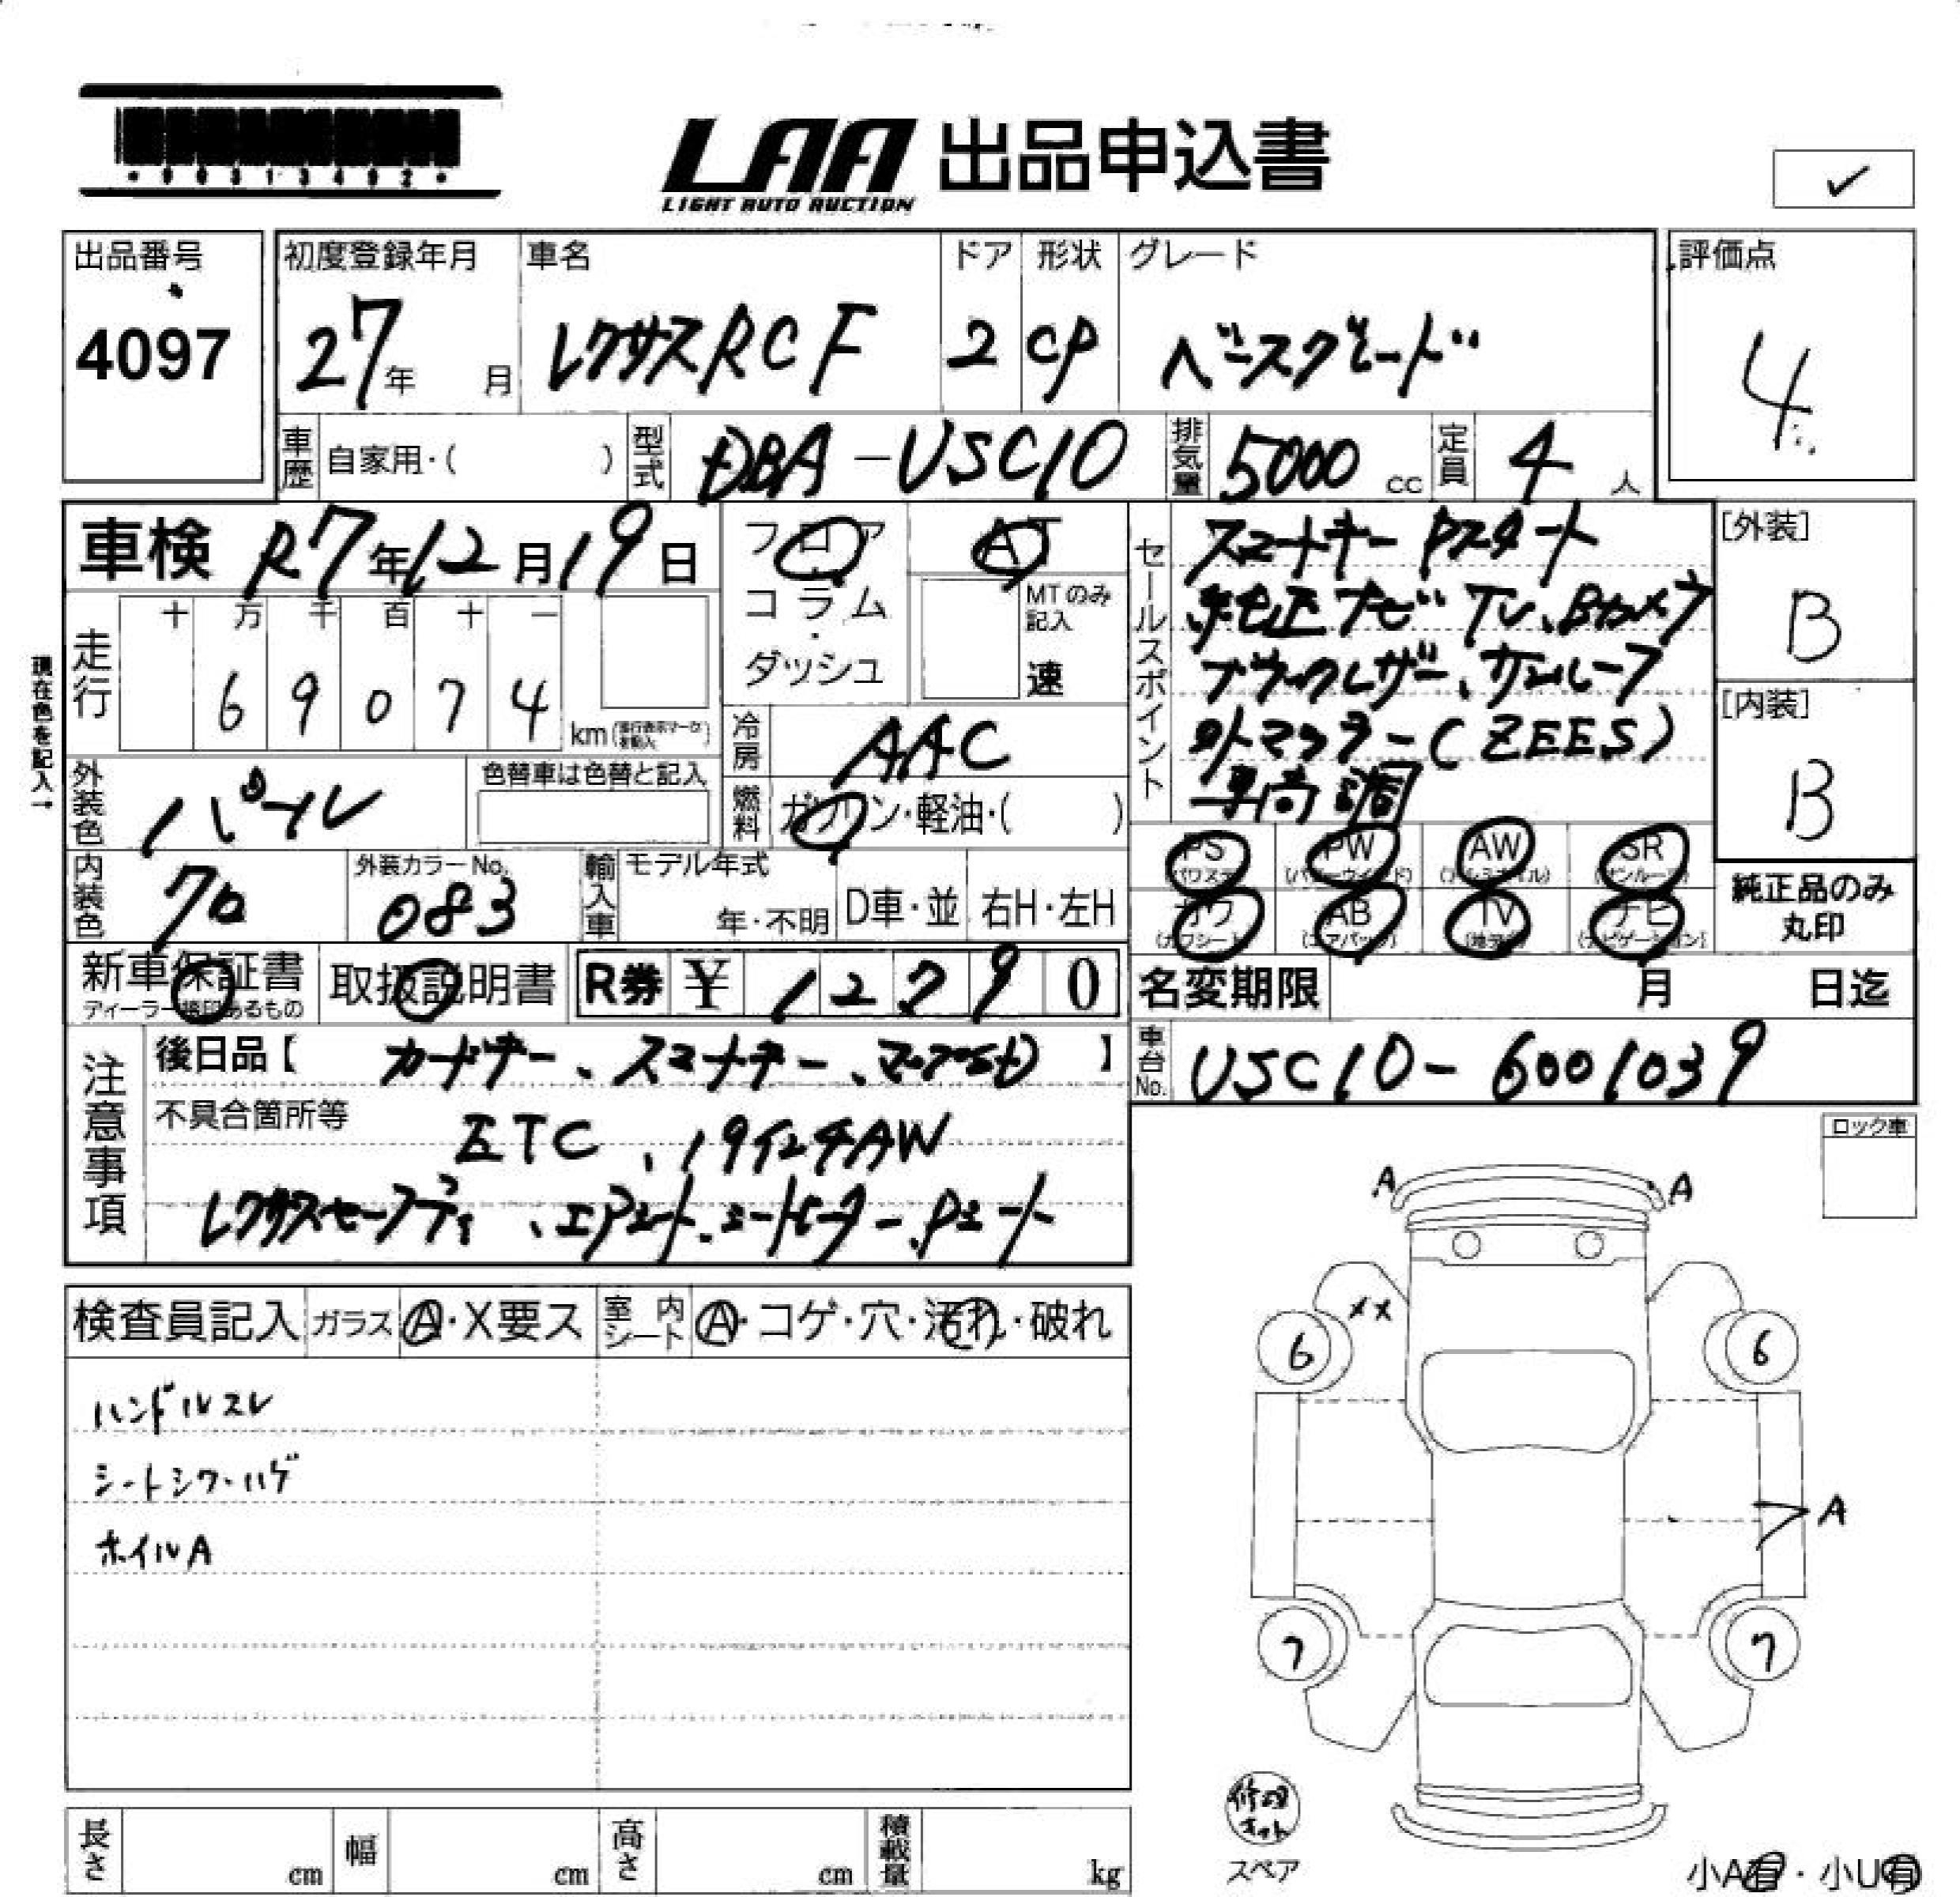 *00313402*
LAA 出品申込書
LIGHT AUTO AUCTION
✓
出品番号
4097
初度登録年月
27年 月
車名
レクサスRCF
ドア
2
形状
CP
グレード
ベースグレード
評価点
4
車歴 自家用・( )
型式 DBA-USC10
排気量 5000 cc
定員 4 人
車検 R7年12月19日
フロア
コラム
・
ダッシュ
AT
MTのみ
記入
速
セールスポイント
スマートキー Pスタート
純正ナビ TV、Bカメラ
ブラックレザー、サンルーフ
外マフラー(ZEES)
車高調
[外装]
B
[内装]
B
現在色を記入→
走行
十 万 千 百 十 一
6 9 0 7 4
km
冷房 AAC
燃料 ガソリン・軽油・( )
外装色 パール
色替車は色替と記入
内装色 クロ
外装カラーNo.
083
輸入車
モデル年式
年・不明
D車・並
右H・左H
PS PW AW SR
(パワステ) (パワーウインド) (アルミホイル) (サンルーフ)
カワ AB TV ナビ
(カワシート) (エアバック) (地デジ) (ナビゲーション)
純正品のみ
丸印
新車保証書
ディーラー捺印あるもの
取扱説明書
R券 ¥ 12790
名変期限 月 日迄
注意事項
後日品【 カードキー、スマートキー、 】
不具合箇所等
ETC、19インチAW
レクサスセーフティ、エアシート、シートヒーター、Pシート
車台No. USC10-6001039
ロック車
検査員記入
ガラス A・X要ス
室内シート A・コゲ・穴・汚れ・破れ
ハンドルスレ
シートシワ・ハゲ
ホイルA
A A
XX
6 6
A
7 7
修理
キット
スペア
小A有・小U有
長さ cm
幅 cm
高さ cm
積載量 kg